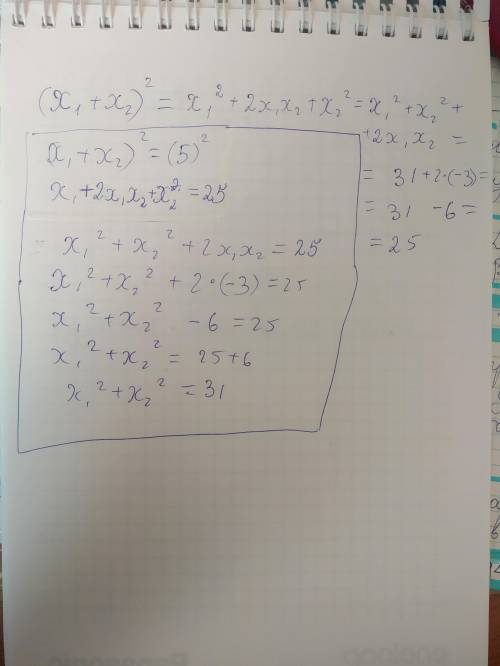 (x₁ + x₂)² = x₁² + 2x₁x₂ + x₂² = x₁² + x₂² +
+ 2x₁x₂ =
= 31 + 2·(-3) =
= 31 - 6 =
= 25
(x₁ + x₂)² = (5)²
x₁ + 2x₁x₂ + x₂² = 25
= x₁² + x₂² + 2x₁x₂ = 25
x₁² + x₂² + 2·(-3) = 25
x₁² + x₂² - 6 = 25
x₁² + x₂² = 25 + 6
x₁² + x₂² = 31